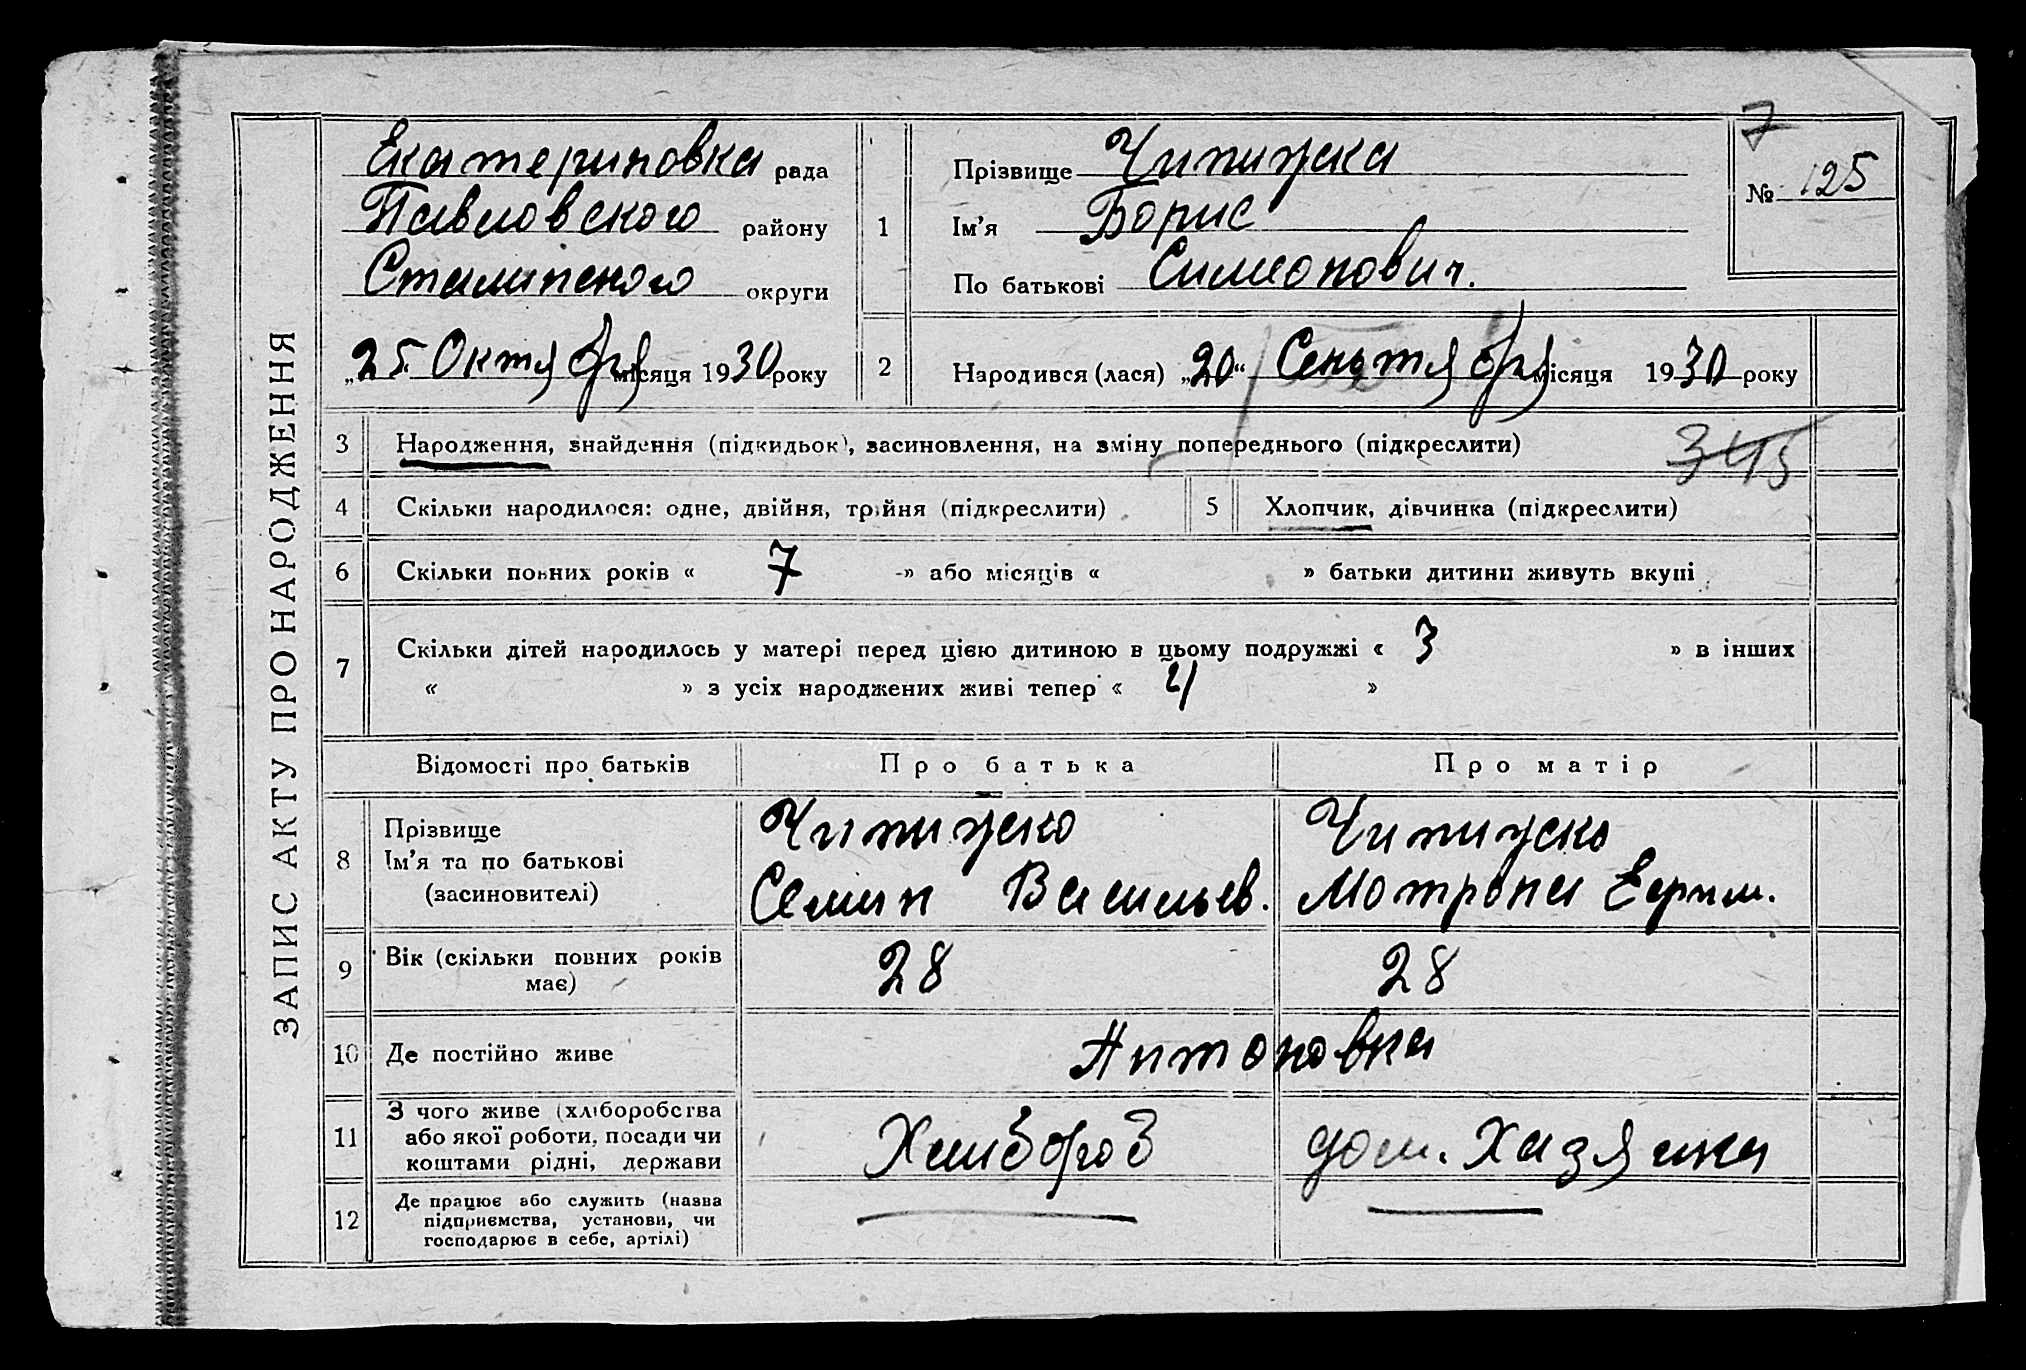 ЗАПИС АКТУ ПРО НАРОДЖЕННЯ
Екатериновка рада
Павловского району
Сталинского округи
„25“ Октября місяця 1930 року
1
Прізвище Чипижка
Ім’я Борис
По батькові Симонович.
7
№ 125
2
Народився (лася) „20“ Сеньтября місяця 1930 року
3 Народження, знайдення (підкидьок), засиновлення, на зміну попереднього (підкреслити)
345
4 Скільки народилося: одне, двійня, трійня (підкреслити)
5 Хлопчик, дівчинка (підкреслити)
6 Скільки повних років « 7 -» або місяців « » батьки дитини живуть вкупі
7
Скільки дітей народилось у матері перед цією дитиною в цьому подружжі « 3 » в інших
« » з усіх народжених живі тепер « 4 »
Відомості про батьків Про батька Про матір
8
Прізвище
Ім’я та по батькові
(засиновителі)
Чипижко
Семин Васильев.
Чипижко
Мотрона
9
Вік (скільки повних років
має)
28 28
10 Де постійно живе Антоновка
11
З чого живе (хліборобства
або якої роботи, посади чи
коштами рідні, держави
Хлибороб дом. Хазяйка
12
Де працює або служить (назва
підприємства, установи, чи
господарює в себе, артілі)